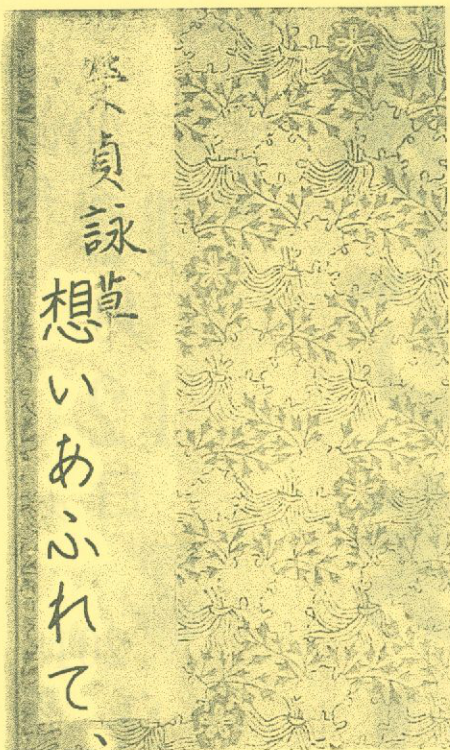 貞詠草
想いあふれて、